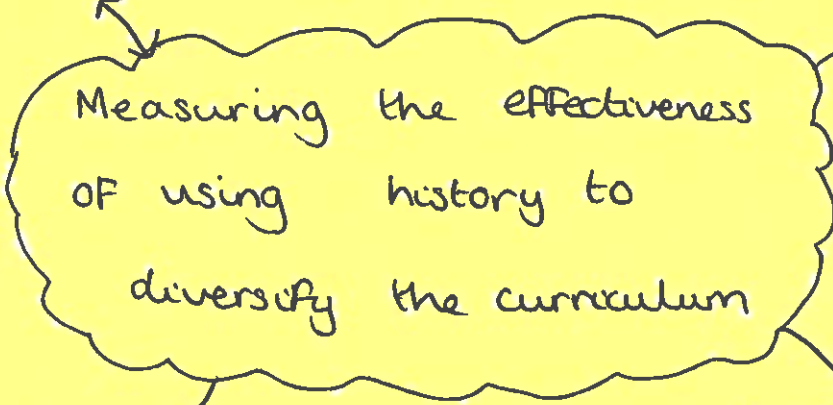 Measuring the effectiveness
of using history to
diversify the curriculum